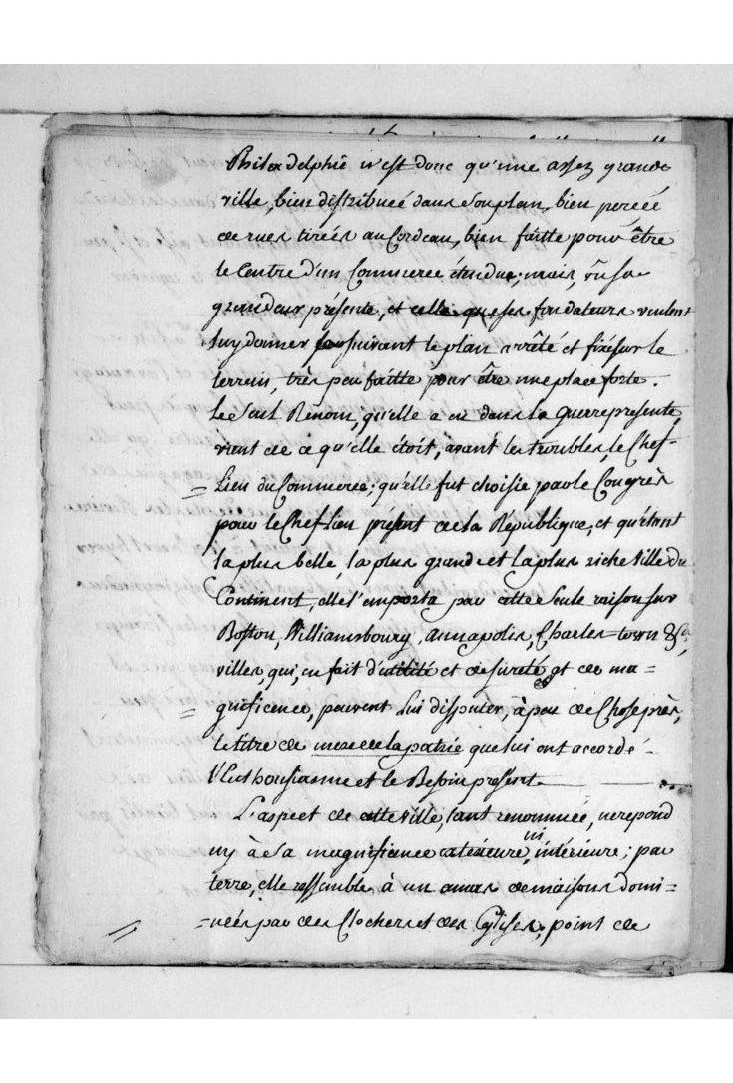 Philadelphie n'est donc qu'une assez grande
ville, bien distribueé dans son plan, bien perceé
de rues tirées au Cordeau, bien faitte pour être
le Centre d'un Commerce étendue; mais, vû sa
grandeur présente, et celle que ses fondateurs veulent
luy donner suivant le plan arrêté et fixé sur le
terrein, très peu faitte pour être une place forte.
Le seul Renom, qu'elle a eu dans la guerre presente,
vient de ce qu'elle étoit, avant les troubles, le Chef-
= Lieu du Commerce; qu'elle fut choisie par le Congrès
pour le Chef Lien présent de la République, et qu'étant
la plus belle, la plus grande et la plus riche ville du
Continent, elle l'emporta par cette seule raison sur
Boston, Williamsbourg, annapolis, Charles-town &ca,
villes, qui, en fait d'utilité et de sureté et de ma=
= gnificence, peuvent Lui disputer, à peu de Chose près,
le titre de mere de la patrie que lui ont accordé
l'Enthousiasme et le Besoin présent.
L'aspect de cette ville, tant renommeé, ne repond
ny à sa magnificence exterieure, ni intérieure; par
terre, elle ressemble à un amas de maisons domi=
=neés par des Clochers et des Eglises, point de